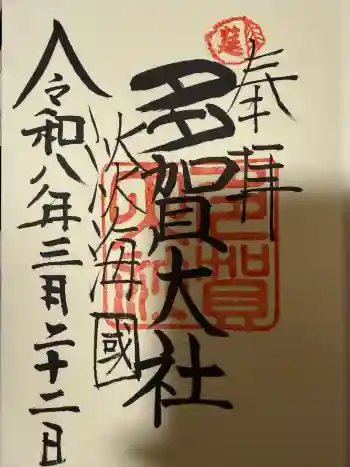 奉拝
多賀大社
淡海國
令和八年三月二十二日
多賀
大社